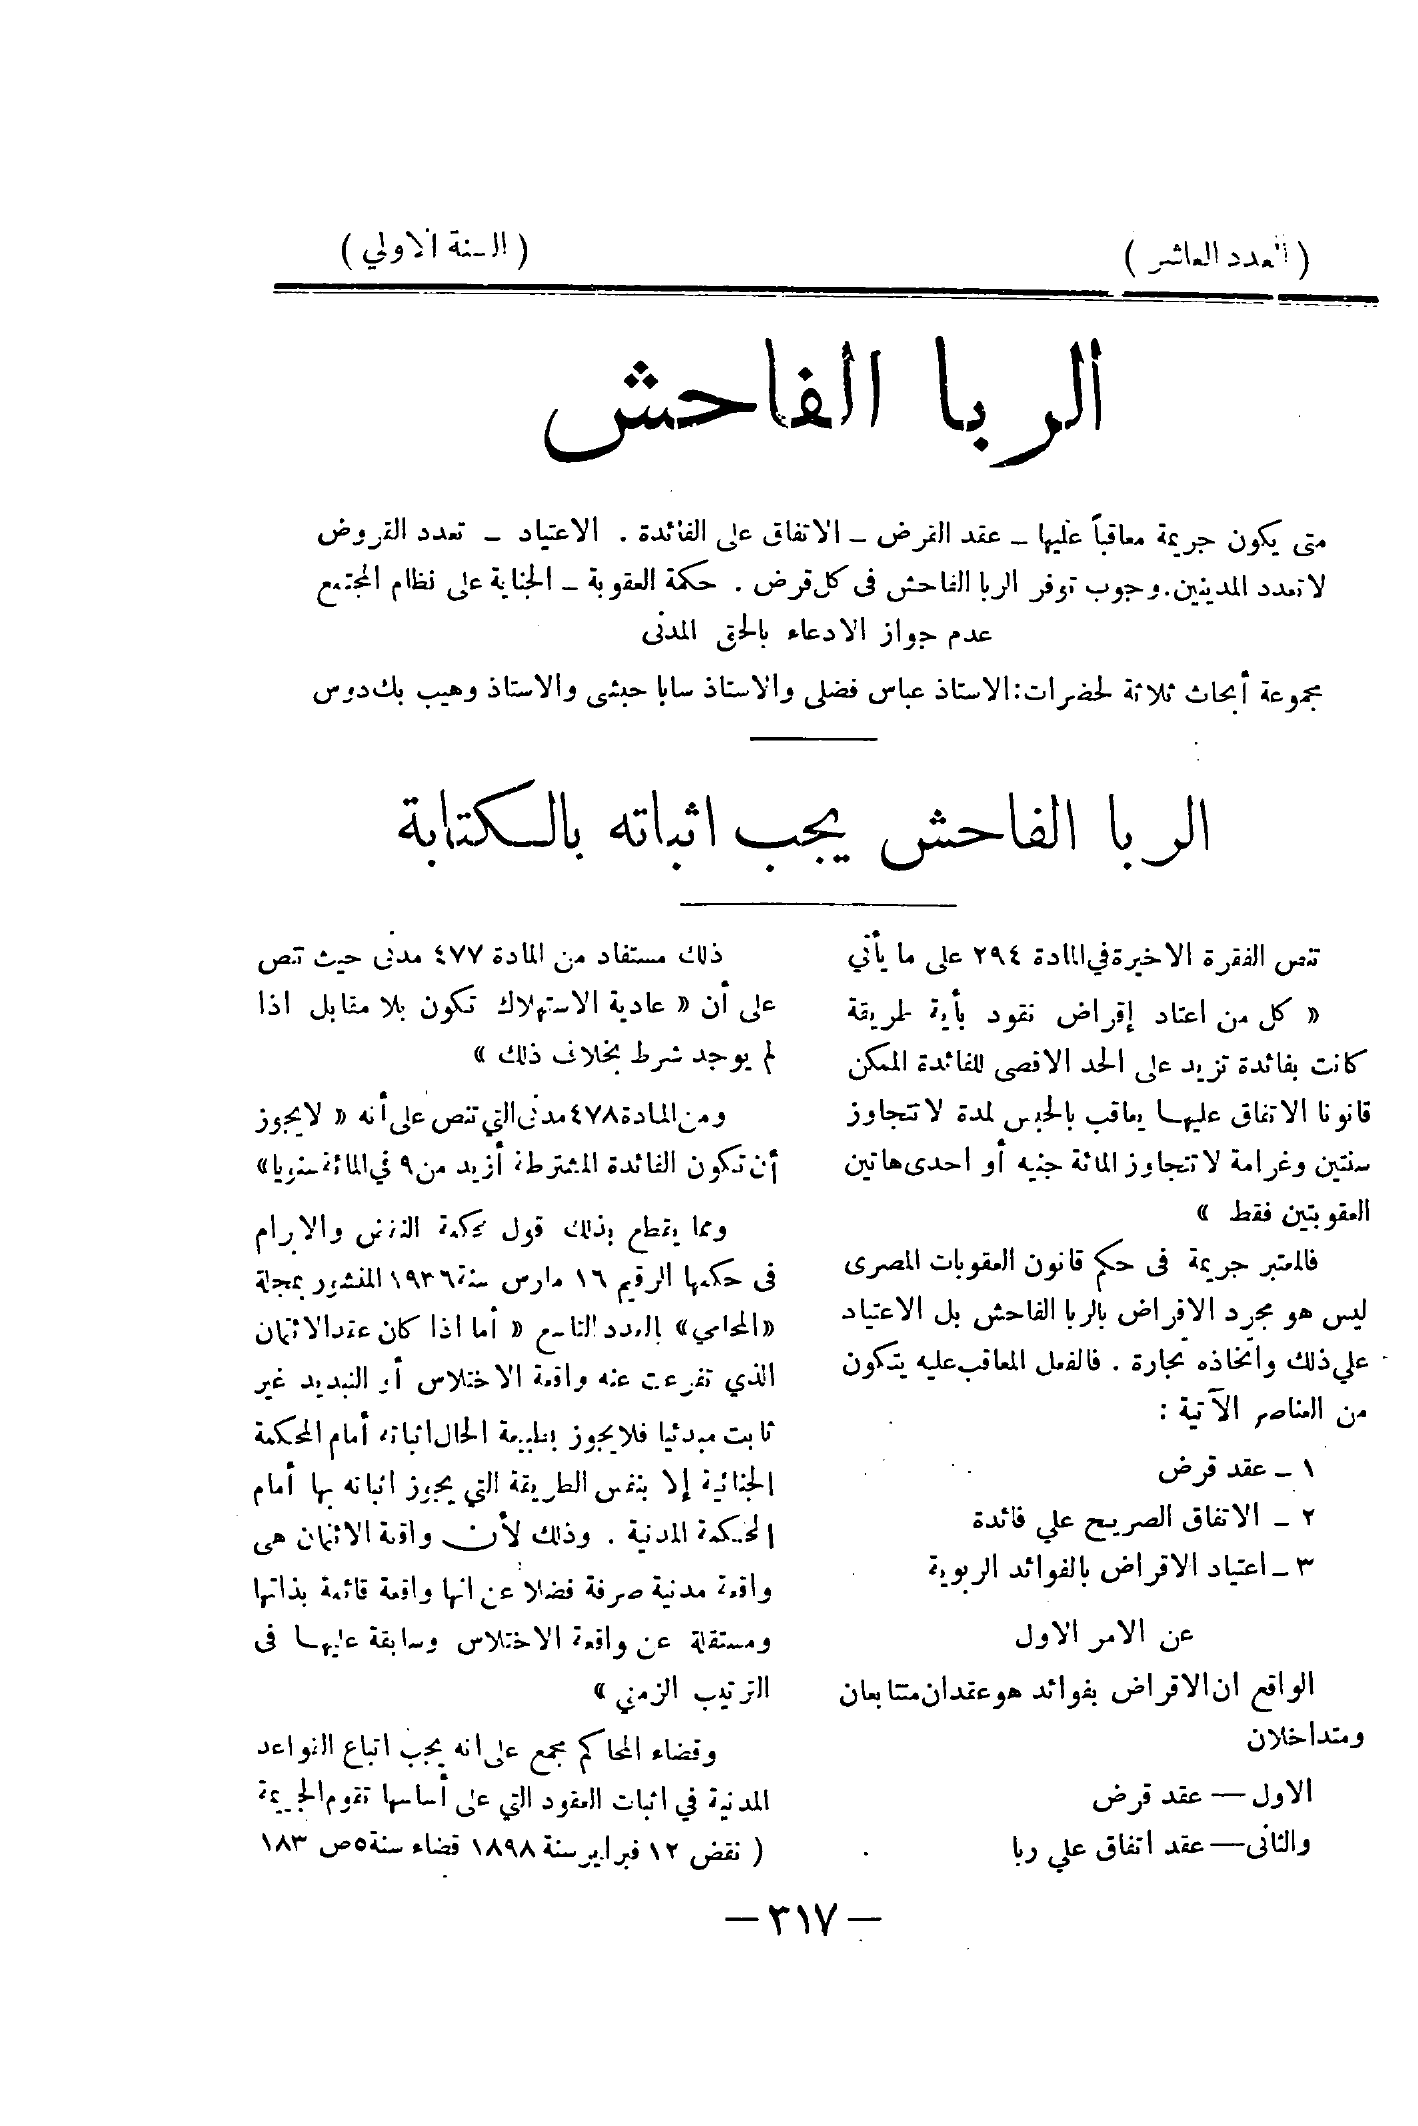 ( العدد العاشر )
( السنة الاولي )
الربا الفاحش
متى يكون جريمة معاقباً عليها ــ عقد القرض ــ الاتفاق على الفائدة . الاعتياد ــ تعدد القروض
لا تعدد المدينين . وجوب توفر الربا الفاحش فى كل قرض . حكمة العقوبة ــ الجناية على نظام المجتمع
عدم جواز الادعاء بالحق المدنى
مجموعة أبحاث ثلاثة لحضرات : الاستاذ عباس فضلى والاستاذ سابا حبشى والاستاذ وهيب بك دوس
الربا الفاحش يجب اثباته بالكتابة
تنص الفقرة الاخيرة في المادة ٢٩٤ على ما يأتي
« كل من اعتاد إقراض نقود بأية طريقة
كانت بفائدة تزيد على الحد الاقصى للفائدة الممكن
قانونا الاتفاق عليها يعاقب بالحبس لمدة لا تتجاوز
سنتين وغرامة لا تتجاوز المائة جنيه أو احدى هاتين
العقوبتين فقط »
فالمعتبر جريمة فى حكم قانون العقوبات المصرى
ليس هو مجرد الاقراض بالربا الفاحش بل الاعتياد
علي ذلك واتخاذه تجارة . فالفعل المعاقب عليه يتكون
من العناصر الآتية :
١ ــ عقد قرض
٢ ــ الاتفاق الصريح علي فائدة
٣ ــ اعتياد الاقراض بالفوائد الربوية
عن الامر الاول
الواقع ان الاقراض بفوائد هو عقدان متتابعان
ومتداخلان
الاول — عقد قرض
والثانى — عقد اتفاق علي ربا
ذلك مستفاد من المادة ٤٧٧ مدنى حيث تنص
على أن « عادية الاستهلاك تكون بلا مقابل اذا
لم يوجد شرط بخلاف ذلك »
ومن المادة ٤٧٨ مدنى التي تنص على أنه « لا يجوز
أن تكون الفائدة المشترطة أزيد من ٩ في المائة سنويا »
ومما يقطع بذلك قول محكمة النقض والابرام
فى حكمها الرقيم ١٦ مارس سنة ١٩٣٦ المنشور بمجلة
« المحامي » بالعدد التاسع « أما اذا كان عقد الائتمان
الذي تفرعت عنه واقعة الاختلاس أو التبديد غير
ثابت مبدئيا فلا يجوز بطبيعة الحال اثباته أمام المحكمة
الجنائية إلا بنفس الطريقة التي يجوز اثباته بها أمام
المحكمة المدنية . وذلك لأن واقعة الائتمان هى
واقعة مدنية صرفة فضلا عن انها واقعة قائمة بذاتها
ومستقلة عن واقعة الاختلاس وسابقة عليها فى
الترتيب الزمني »
وقضاء المحاكم مجمع على انه يجب اتباع القواعد
المدنية في اثبات العقود التي على أساسها تقوم الجريمة
( نقض ١٢ فبراير سنة ١٨٩٨ قضاء سنة ٥ ص ١٨٣
— ٣١٧ —